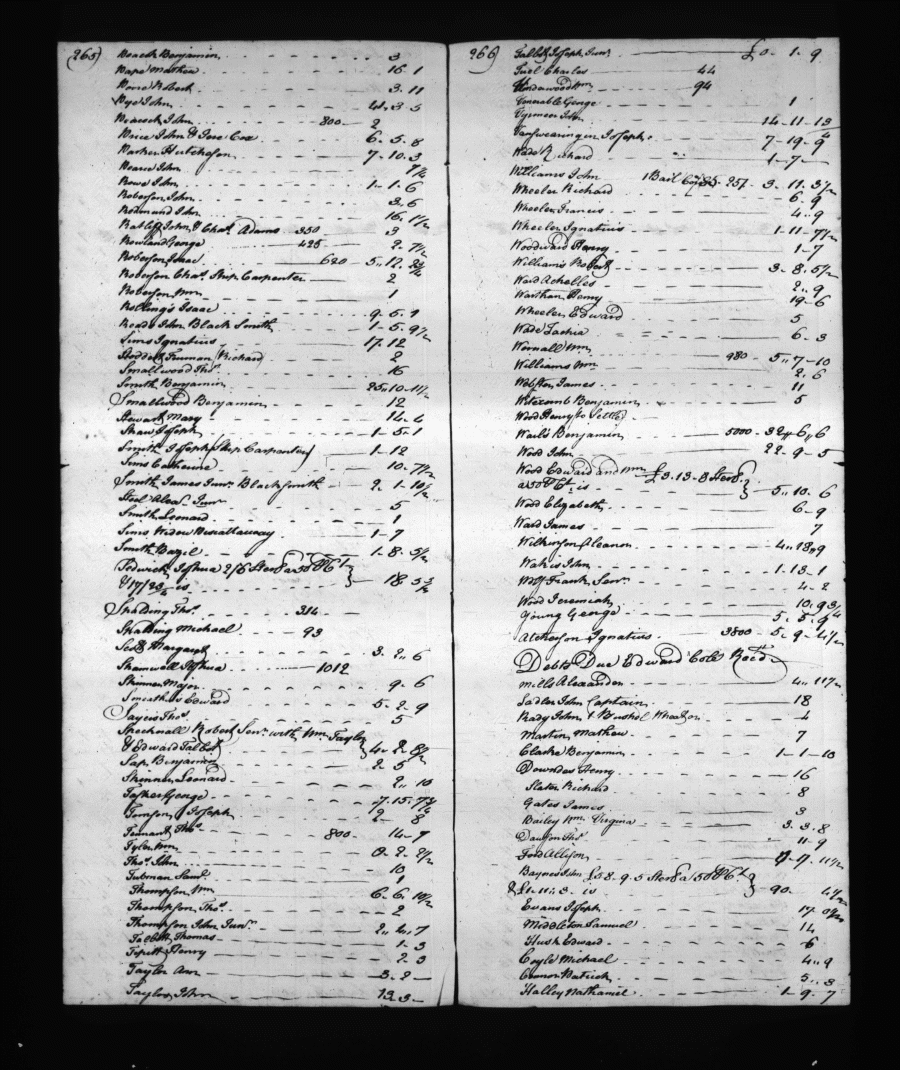 265)
Benjamin 3
Mathew 16. 1
Robert 3. 11
Nye John 4. 3. 5
Peacock John 800 2
Price John & Jere Cox 6. 5. 8
Parker Hutcheson 7. 10. 3
John 7½
Rowe John 1. 1. 6
Roberson John 3. 6
Redmund John 16. 1½
Ratliff John & Chas. Adams 350 3
Rowland George 425 2. 7½
Roberson Isaac 620 5. 12.
Roberson Chas. Ship Carpenter 2
Roberson Wm. 1
Rolling's Isaac 9. 5. 1
Reade John Black Smith 1. 5. 9½
Sims Ignatius 17. 12
Stoddert Truman (Richard) 2
Smallwood Thos. 16
Smith Benjamin 25. 10. 11½
Smallwood Benjamin 12
Stewart Mary 14. 4
Shaw Joseph 1. 5. 1
Smith Joseph (Ship Carpenter) 1. 12
Sims Catherine 10. 7½
Smith James Junr. Blacksmith 2. 1. 10½
Steel Alexr. Junr. 5
Smith Leonard 1
Sims Widow Piscattaway 1. 7
Smith Bazil 1. 8. 5½
Joshua 2/6 Ster
& 17/23/4 is 18. 5
Spalding Thos. 314
Spalding Michael 93
Scott Margarett 3. 2. 6
Shamwell Joshua 1012
Skinner Major 9. 6
Edward 5. 2. 9
Thos. 5
Robert Senr. with Wm. Taylor
& Edward Talbet 4. 2. 8½
Benjamin 2. 5
Skinner Leonard 2. 10
Tasker George 7. 15.
Tomson Joseph 8
Tennant Thos. 800 14. 7
Tyler Wm. 8. 2. 2½
Thos. John 10
Tubman Saml. 1
Thompson Wm. 6. 6. 10½
Thompson Thos. 2
Thompson John Junr. 2. 6. 7
Talbett Thomas 1. 3
Tippett Henry 2. 3
Taylor Ann 3. 2
Taylor John 13. 3
266)
Talbett Joseph Junr. £0. 1. 9
Charles 44
Underwood Wm. 94
Venerable George 1
14. 11. 13
Vanswearingen Joseph 7. 19. 9
Wade Richard 1. 7
Williams John 1 Bail 257 3. 11. 3½
Wheeler Richard 6. 9
Wheeler Francis 4. 9
Wheeler Ignatius 1. 11. 7½
Woodward Henry 1. 7
Williams Robert 3. 8. 5½
Ward Achelles 2. 9
Warthan Henry 19. 6
Wheeler Edward 5
Wade 6. 3
Wornall Wm. 980 5. 7. 10
Williams Wm. 2. 6
Webster James 11
Benjamin 5
Wood Henry to Settle
Benjamin 5000 32. 6. 6
Wood John 22. 9. 5
Wood Edward and Wm. £3. 13. 8 Ster
a 50 Ct. is 5. 10. 6
Wood Elizabeth 6. 9
Ward James 7
Wilkinson Eleanor 4. 18. 9
John 1. 13. 1
Frank Senr. 4. 2
Wood Jeremiah 10. 9¾
Young George 5. 5. 9
Atcherson Ignatius 3800 5. 9. 4½
Debts Due Edward Cole
Mills Alexander 4. 11½
Sadler John Captain 18
Rady John 1 Bushil Wheat on 4
Martin Mathew 7
Clarke Benjamin 1. 1. 10
Downdes Henry 16
Slater Richard 8
Gates James 3
Bailey Wm. Virginia 3. 3. 8
Dawson Thos. 11. 9
Ford Allison 11½
Baynes John £58. 9. 5 Ster a 50 Ct.
& £1. 11. 3. is 90. 4½
Evans Joseph 17.
Middleton Samuel 14
Husk Edward 6
Coyle Michael 4. 9
Connor Patrick 5. 3
Halley Nathaniel 1. 9. 7